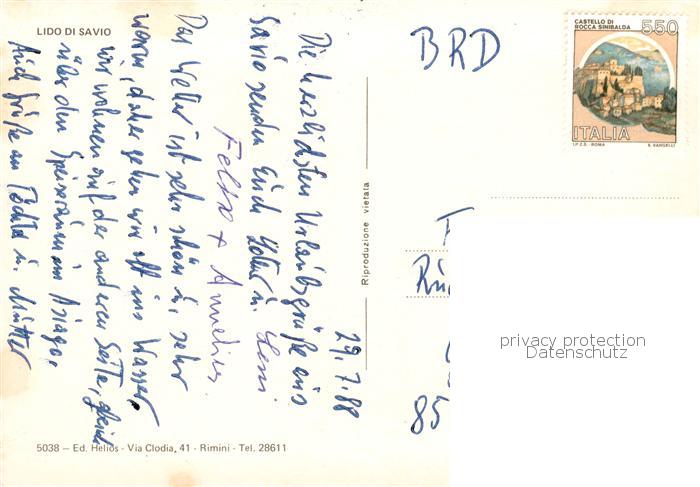 LIDO DI SAVIO
29.7.88
Die herzlichsten Urlaubsgrüße aus
Savio senden Euch Dieter u.
Felix + Annelies.
Das Wetter ist sehr schön u. sehr
warm, daher gehen wir oft ins Wasser.
Wir wohnen auf der anderen Seite, gleich
über den Speiseräumen im Asiago.
Auch Grüße an Tochter u. Mutter
Riproduzione vietata
5038 — Ed. Helios - Via Clodia, 41 - Rimini - Tel. 28611
BRD
CASTELLO DI
ROCCA SINIBALDA
550
ITALIA
I.P.Z.S. - ROMA
E. VANGELLI
85
privacy protection
Datenschutz